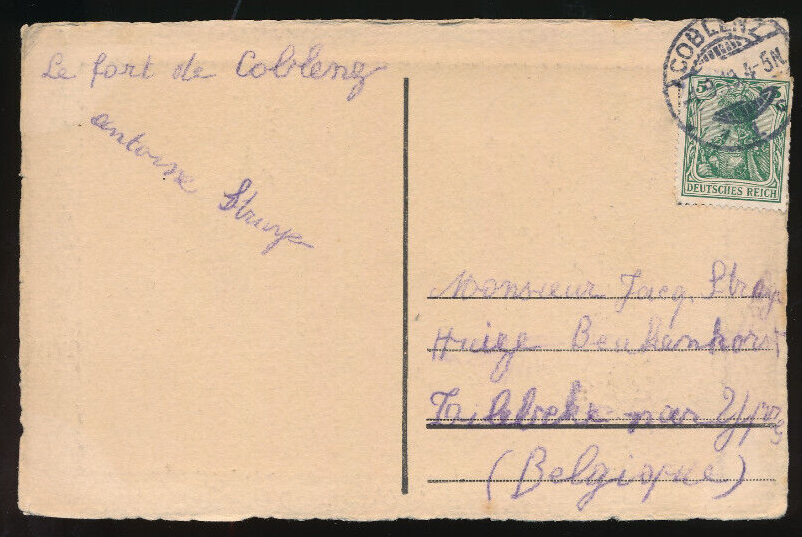 Le fort de Coblenz
antoine Struye
COBLENZ
4-5N
5 5
DEUTSCHES REICH
Monsieur Jacq. Struye
Huize Beukenhorst
Zillebeke par Ypres
(Belgique)